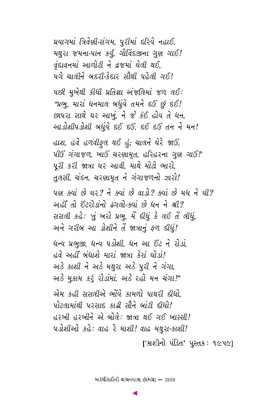 પ્રયાગમાં ત્રિવેણી-સંગમ, પુરીમાં દરિયે નહાઈ,
મથુરા જમના-પાન કર્યું, ગોવિંદજીના ગુણ ગાઈ!
વૃંદાવનમાં આળોટી ને વ્રજમાં ઘેલી થઈ,
પગે ચાલીને બદરી-કેદાર સૌથી પહેલી ગઈ!
પછી મુખેથી કીધી પ્રતિજ્ઞા અંજલિમાં જળ લઈ:
"પ્રભુ, મારાં ધનમાલ બધુંયે તમને દઉં છું દઈ!
છાપરા સાથે ઘર આખું, ને જે કંઈ હોય તે ધન,
આડોશીપાડોશી બધુંયે દઈ દઉં, દઈ દઉં તન ને મન!
હાશ, હવે હળવીફૂલ થઈ હું; ચાલને ઘેરે જાઉં,
પીઉં ગંગાજળ, ખાઉં ચરણામૃત, હરિહરના ગુણ ગાઉં!"
પૂરી કરી જાત્રા ઘર આવી, માથે મોટો ભારો,
તુલસી, ચંદન, ચરણામૃત ને ગંગાજળનો ઝારો!
પણ ક્યાં છે ઘર? ને ક્યાં છે વાડો? ક્યાં છે મધ ને ઘી?
અહીં તો ઈંટરોડાંનો ઢગલો-ક્યાં છે ધન ને શ્રી?
સસલી કહે: 'તું ખરો પ્રભુ, મેં દીધું કે લઈ તેં લીધું,
અને ગરીબ આ ડોશીને તેં જાત્રાનું ફળ દીધું!
ધન્ય પ્રભુજી, ધન્ય પડોશી, ધન આ ઈંટ ને રોડાં,
હવે અહીં બંધાશે મારાં જાત્રા કેરાં ઘોડાં!
અઠે કાશી ને અઠે મથુરા અઠે પુરી ને ગંગા,
અઠે મુકામ કરું રોડાંમાં, અઠે રહો મન ચંગા!"
એમ કહી સસલીએ ભોંયે કામળો પાથરી દીધો,
પોટલામાંથી પરસાદ કાઢી સૌને બાંટી દીધો!
હરખી હરખીને એ બોલે: જાત્રા થઈ ગઈ ખાસ્સી!
પડોશીઓ કહે: વાહ રે માશી! વાહ મથુરા-કાશી!
['કાશીનો પંડિત' પુસ્તક: ૧૯૫૯]